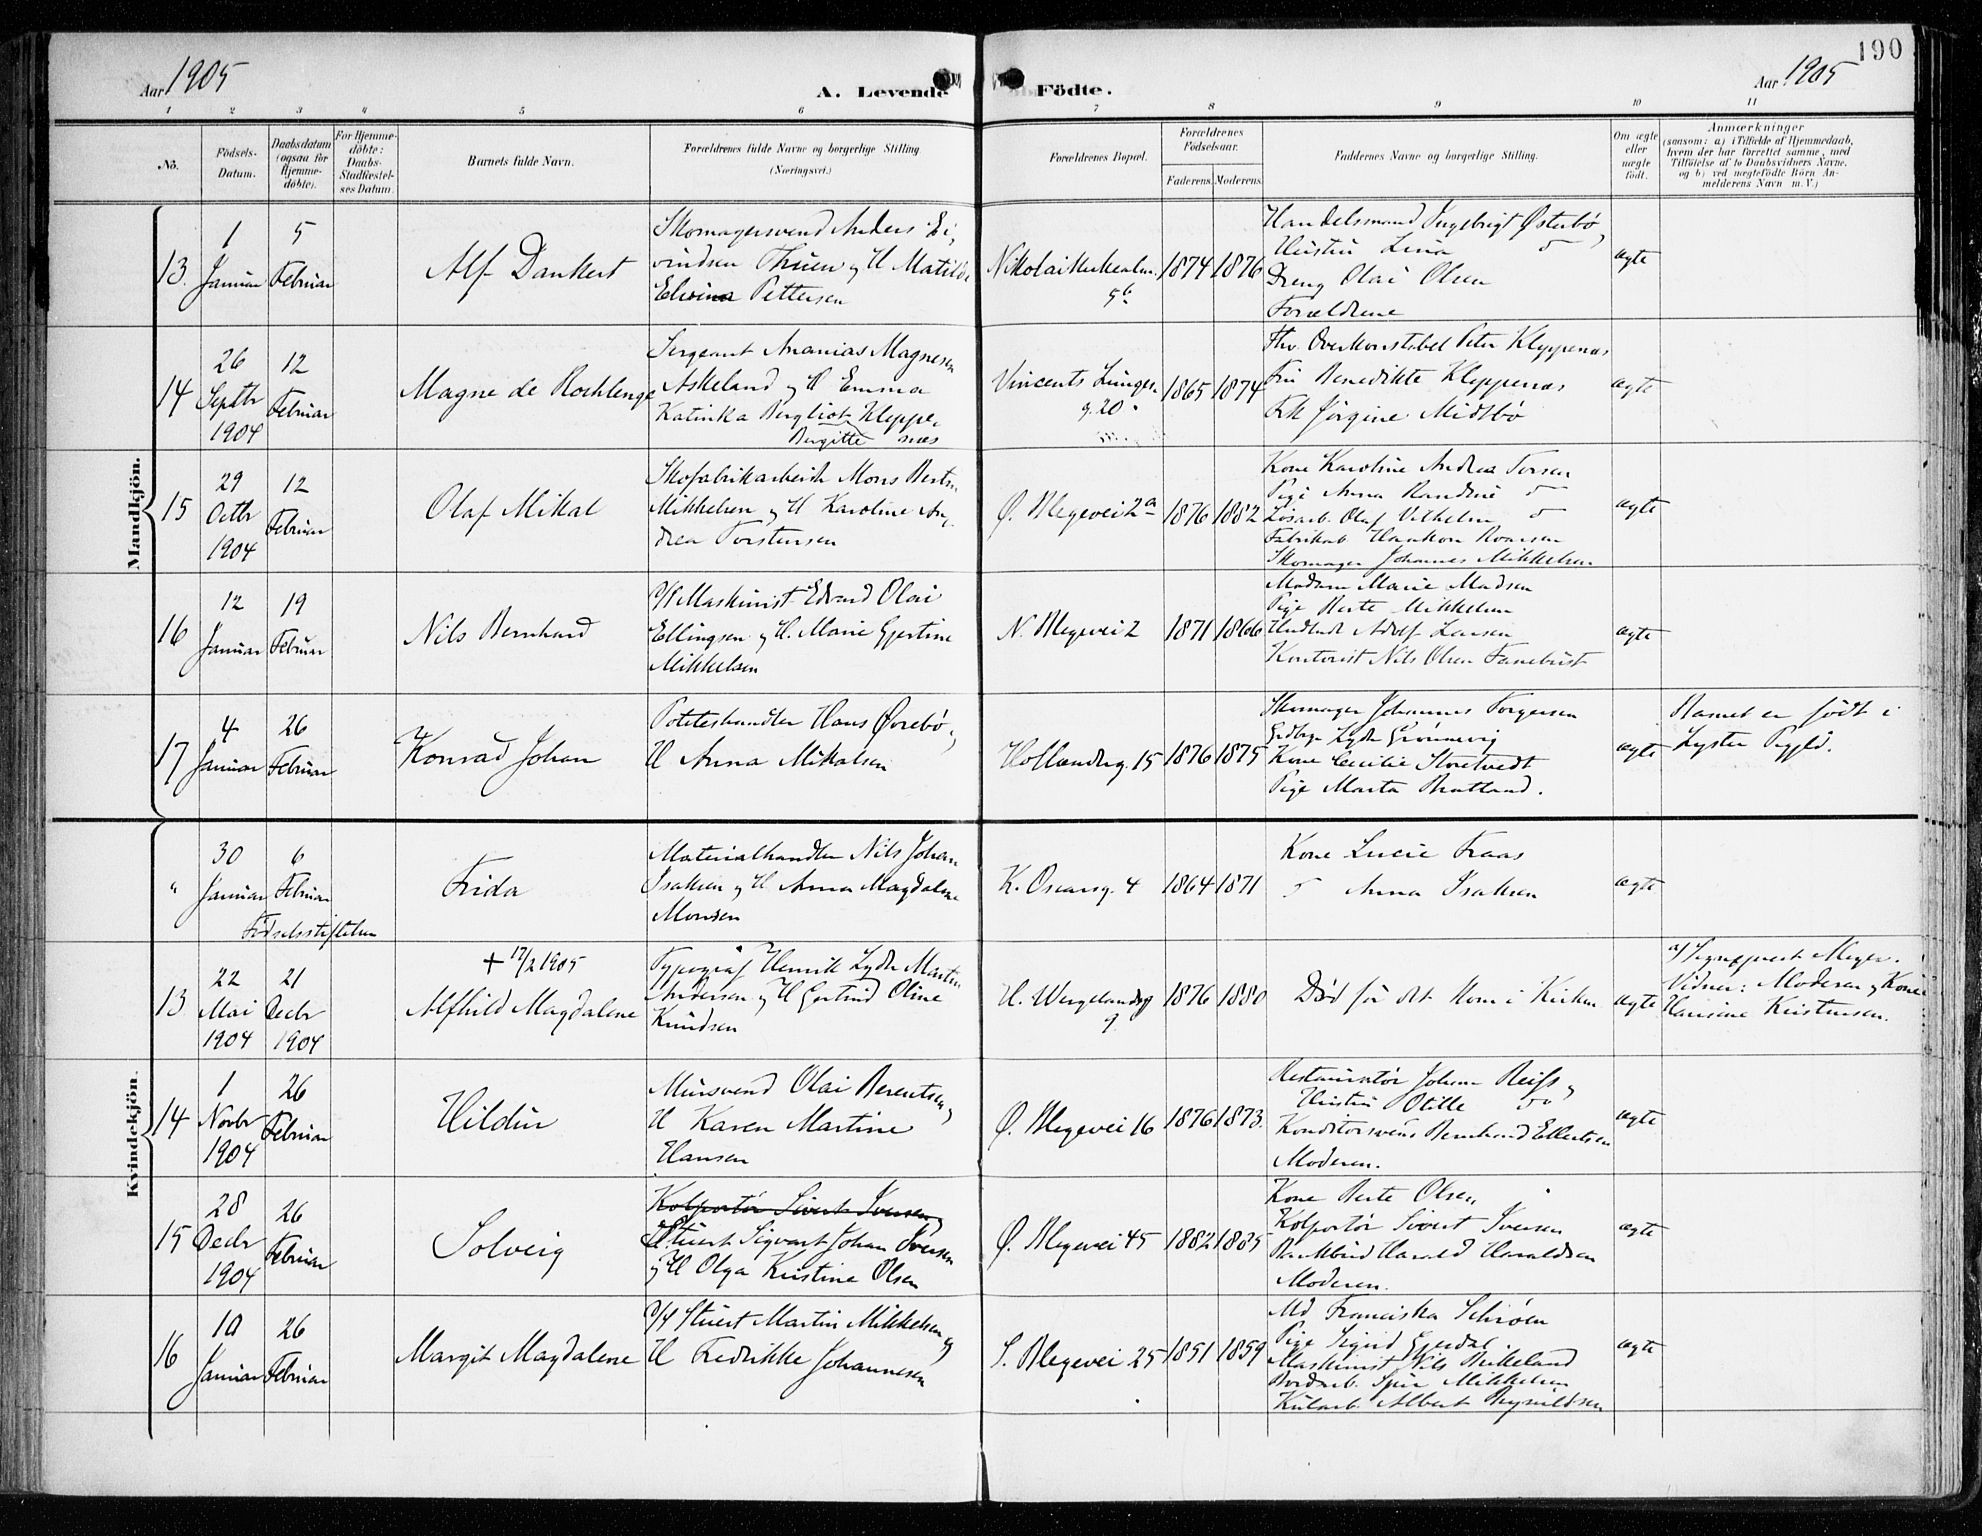 190
Aar 1905
A. Levende Födte.
Aar 1905
1 2 3 4 5 6 7 8 9 10 11
No.
Födsels-
Datum.
Daabsdatum
(ogsaa for
Hjemme-
döbte).
For Hjemme-
döbte:
Daabs-
Stadfæstel-
ses Datum.
Barnets fulde Navn.
Forældrenes fulde Navne og borgerlige Stilling
(Næringsvei.)
Forældrenes Bopæl.
Forældrenes
Födselsaar.
Faderens. Moderens.
Faddernes Navne og borgerlige Stilling.
Om ægte
eller
uægte
födt.
Anmærkninger
(saasom: a) i Tilfælde af Hjemmedaab,
hvem der har forrettet samme, med
Tilföielse af to Daabsvidners Navne,
og b) ved uægtefödte Börn An-
melderens Navn m. V.)
Mandkjön.
13.
1
Januar
5
Februar
Alf Dankert
Skomagersvend Anders Ei,
vindsen Thuen og H Matilde
Elvina Pettersen
Nikolaikirkealm.
5b
1874 1876
Handelsmand Ingebrigt Østerbø,
Hustru Lina
Dreng Olai Olsen
Forældrene
ægte
14
26
Septbr
1904
12
Februar
Magne de Rochlenge
Sergeant Ananias Magnesen
Askeland og H Emma
Katinka Bergliot Kleppe,
Bergitte næs
Vincents Lunges.
g. 20.
1865 1874
Fhv. Overkonstabel Peter Kleppenæs
Fru Benedikte Kleppenæs
Frk Jørgine Midtbø
ægte
15
29
Octbr
1904
12
Februar
Olaf Mikal
Skofabrikarbeider Mons Bertin
Mikkelsen og H Karoline An,
drea Torstensen
Ø. Blegevei 2a
1876 1882
Kone Karoline Andrea Torsen
Pige Anna Randine
Løsarb. Olaf Vilhelm
Fabrikarb Haakon Roarsen
Skomager Johannes Mikkelsen
ægte
16
12
Januar
19
Februar
Nils Bernhard
Maskinist Edvard Olai
Ellingsen og H. Marie Gjertine
Mikkelsen
N. Blegevei 2
1871 1866
Madam Marie Madsen
Pige Berte Mikkelsen
Adolf Larsen
Kontorist Nils Olsen Fanebust
ægte
17
4
Januar
26
Februar
Konrad Johan
Poteteshandler Hans Øvrebø,
H Anna Mikalsen
Hollænderg. 15
1876 1875
Skomager Johannes Torgersen
Lyder Grønnevig
Kone Cecilie Storetvedt
Pige Marta Bratland.
ægte
Barnet er født i
Lyster Prgjld.
Kvindekjön.
"
30
Januar
6
Februar
Fødselsstiftelsen
Frida
Materialhandler Nils Johan
Isaksen og H Anna Magdalene
Monsen
K. Oscarsg. 4
1864 1871
Kone Lucie Fraas
Anna Isaksen
ægte
13
22
Mai
1904
21
Decbr
1904
+ 17/2 1905
Alfhild Magdalene
Typograf Henrik Lyder Martin
Andersen og H Gertrud Oline
Knudsen
H. Wergelandsg
9
1876 1880
Død før det kom i Kirken
ægte
af Sygeprest Meyer.
Vidner: Moderen og Kone
Hansine Kristensen.
14
1
Novbr
1904
26
Februar
Hildur
Mursvend Olai Berentsen,
H Karen Martine
Hansen
Ø. Blegevei 16
1876 1873.
Restauratør Johan Reiss,
Hustru Otille
Konditorsvend Bernhard Ellertsen
Moderen.
ægte
15
28
Decbr
1904
26
Februar
Solveig
Kolportør Sivert Iversen
Stuert Sigvart Johan Iversen
og H Olga Kristine Olsen
Ø. Blegevei 45
1882 1885
Kone Berte Olsen
Kolportør Sivert Iversen
Bankbud Harald Haraldsen
Moderen.
ægte
16
10
Januar
26
Februar
Margit Magdalene
Stuert Martin Mikkelsen og
H Fredrikke Johannesen
S. Blegevei 25
1851 1859
Md Franciska Schrøen
Pige Sigrid Gjerdal.
Maskinist Nils Birkeland
Bordarb. Mikkelsen
Kularb. Albert Brynildsen
ægte